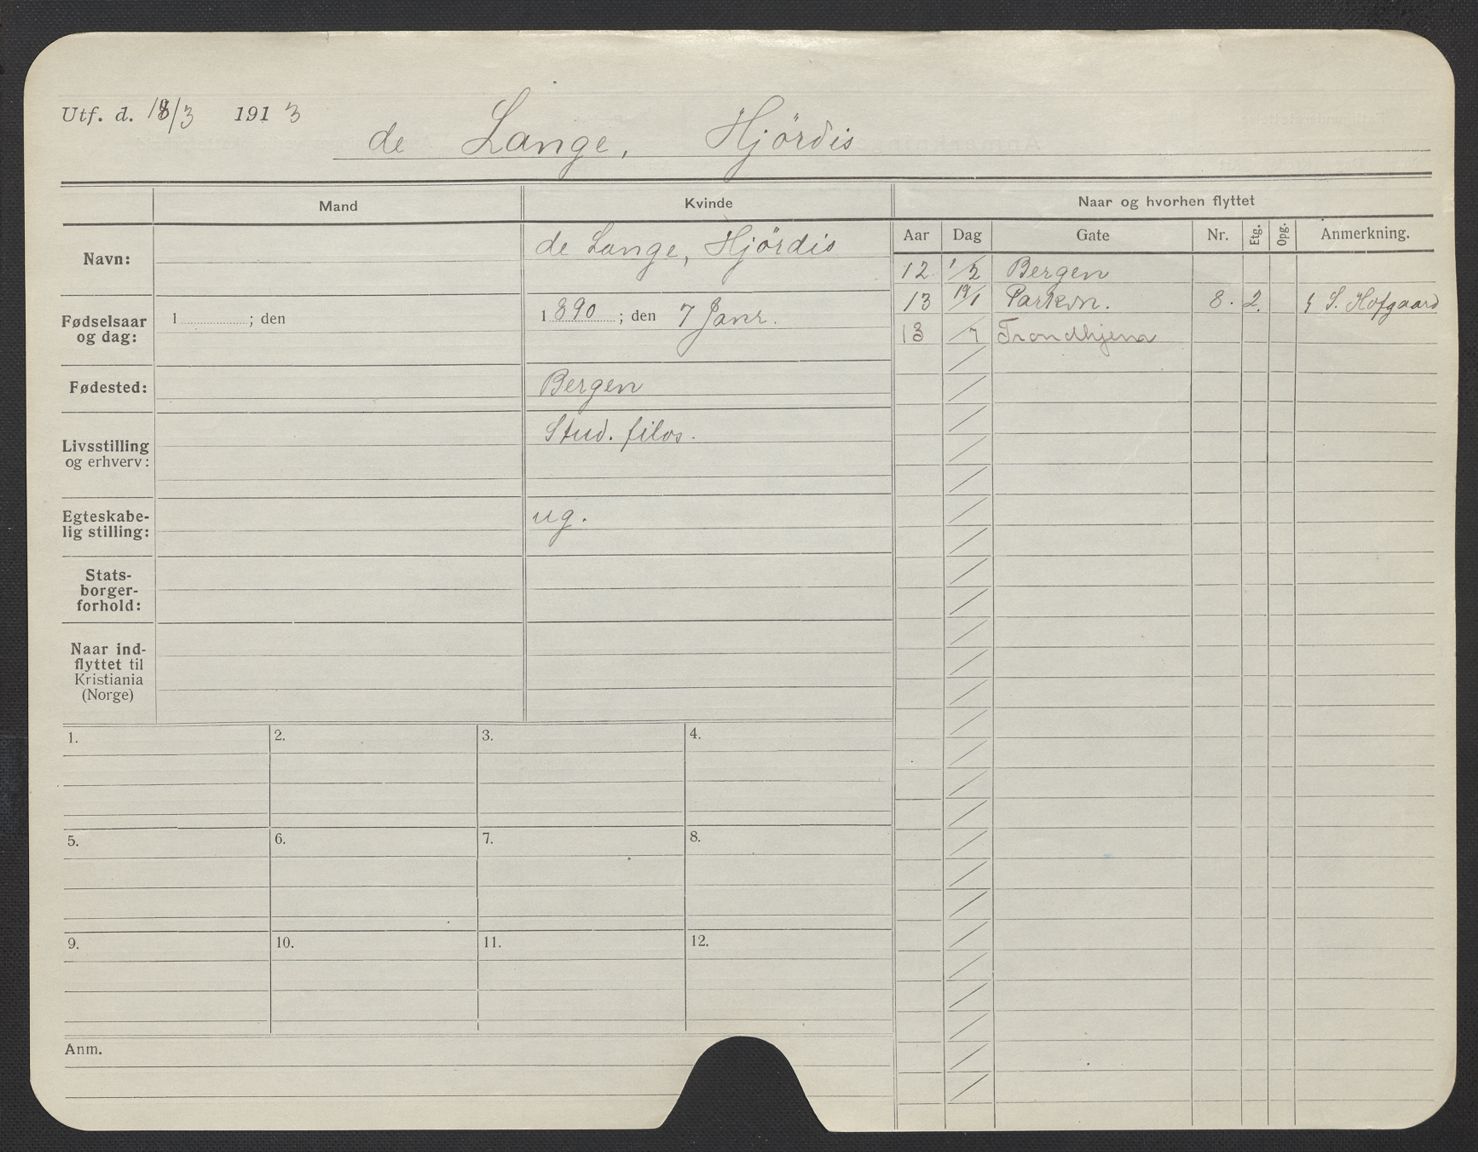 Utf. d. 18/3 1913
de Lange, Hjördis
Mand
Kvinde
Naar og hvorhen flyttet
Navn:
de Lange, Hjördis
Fødselsaar og dag:
1 ; den
1890 ; den 7 Janr.
Fødested:
Bergen
Livsstilling og erhverv:
Stud. filos.
Egteskabelig stilling:
ug.
Statsborgerforhold:
Naar indflyttet til Kristiania (Norge)
Aar Dag Gate Nr. Etg. Opg. Anmerkning.
12 1/2 Bergen
13 19/1 Parkvn. 8. 2. S. Hofgaard
13 /7 Trondhjem
1. 2. 3. 4.
5. 6. 7. 8.
9. 10. 11. 12.
Anm.